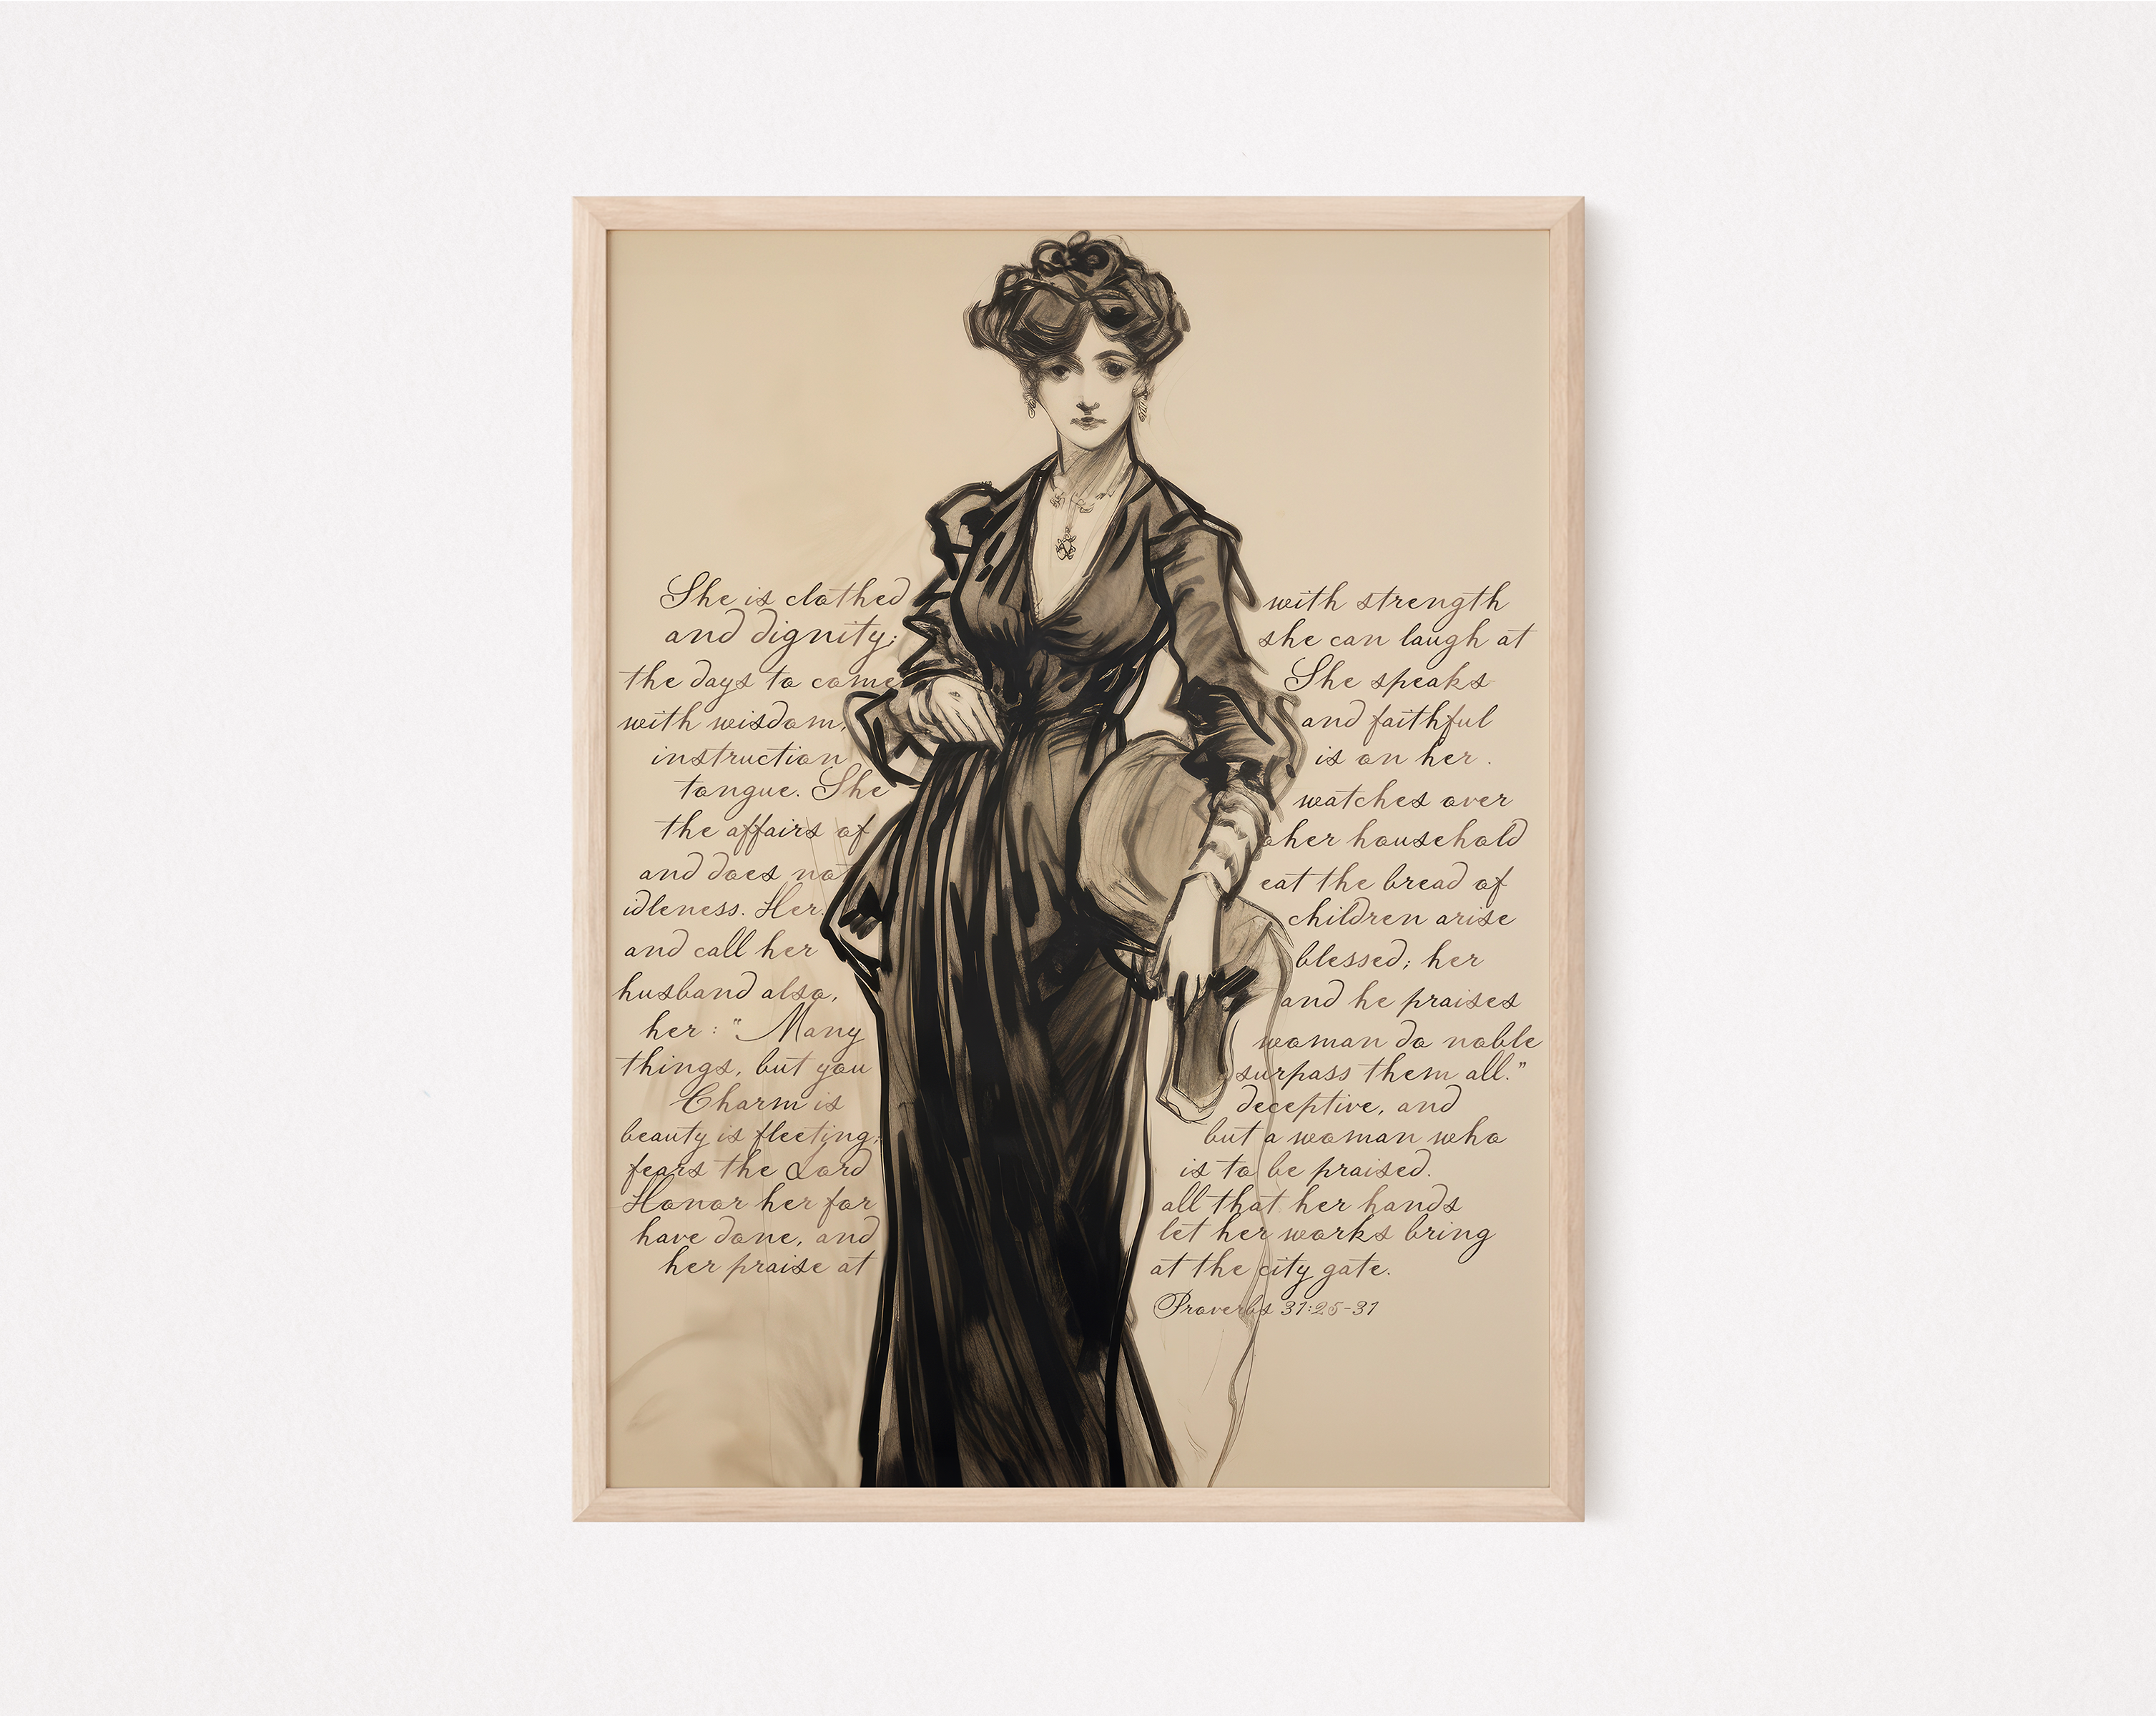 She is clothed with strength
and dignity; she can laugh at
the days to come She speaks
with wisdom, and faithful
instruction is on her .
tongue. She watches over
the affairs of her household
and does not eat the bread of
idleness. Her children arise
and call her blessed; her
husband also, and he praises
her: "Many woman do noble
things, but you surpass them all."
Charm is deceptive, and
beauty is fleeting; but a woman who
fears the Lord is to be praised.
Honor her for all that her hands
have done, and let her works bring
her praise at at the city gate.
Proverbs 31:25-31